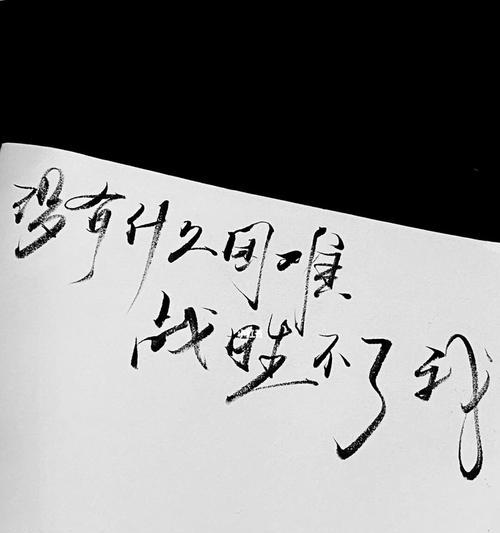 没有什么困难
战胜不了我